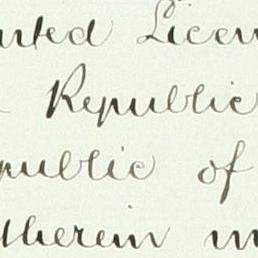 Licen
Republic
public of
therein